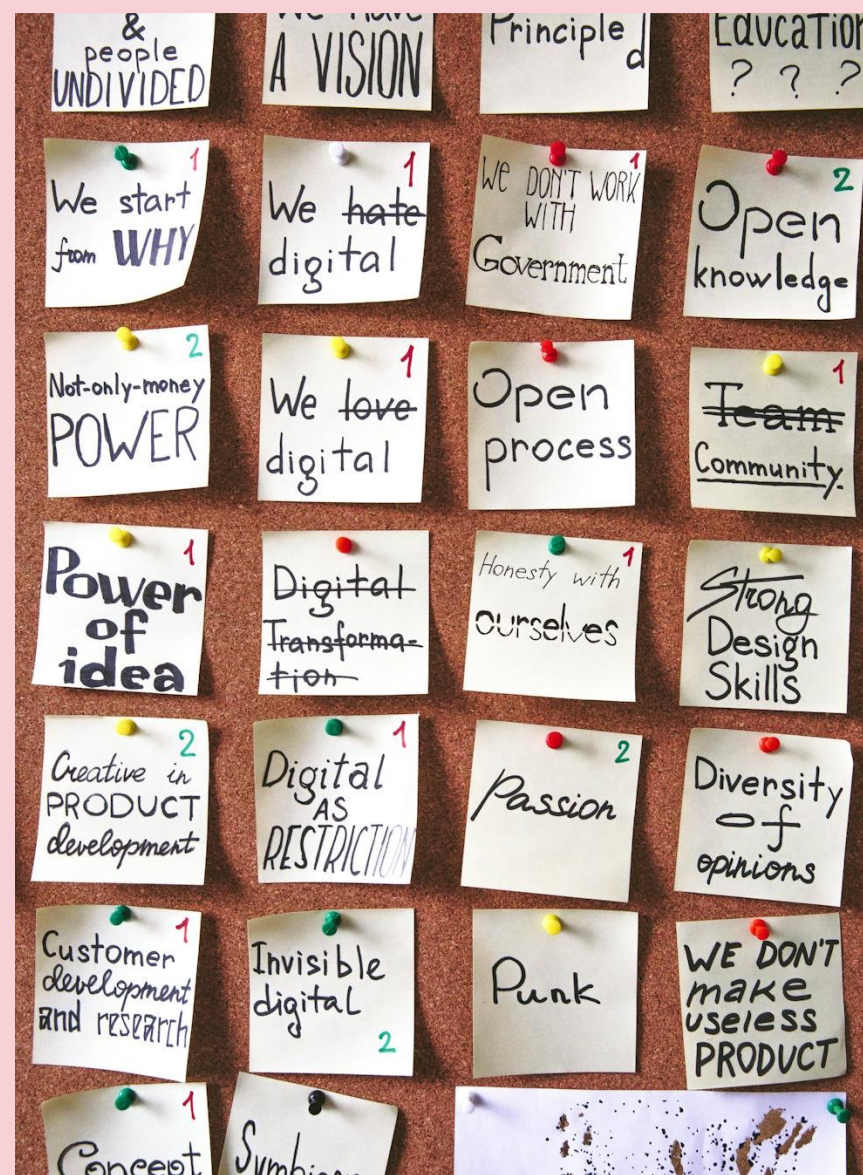 &
people
UNDIVIDED
We have
A VISION
Principle
d
Education
? ? ?
1
We start
from WHY
1
We hate
digital
1
WE DON'T WORK
WITH
Government
2
Open
knowledge
2
Not-only-money
POWER
1
We love
digital
Open
process
1
Team
Community.
1
Power
of
idea
Digital
Transforma-
tion
1
Honesty with
ourselves
Strong
Design
Skills
2
Creative in
PRODUCT
development
1
Digital
AS
RESTRICTION
2
Passion
Diversity
of
opinions
1
Customer
development
and research
Invisible
digital
2
Punk
WE DON'T
make
useless
PRODUCT
1
Concept